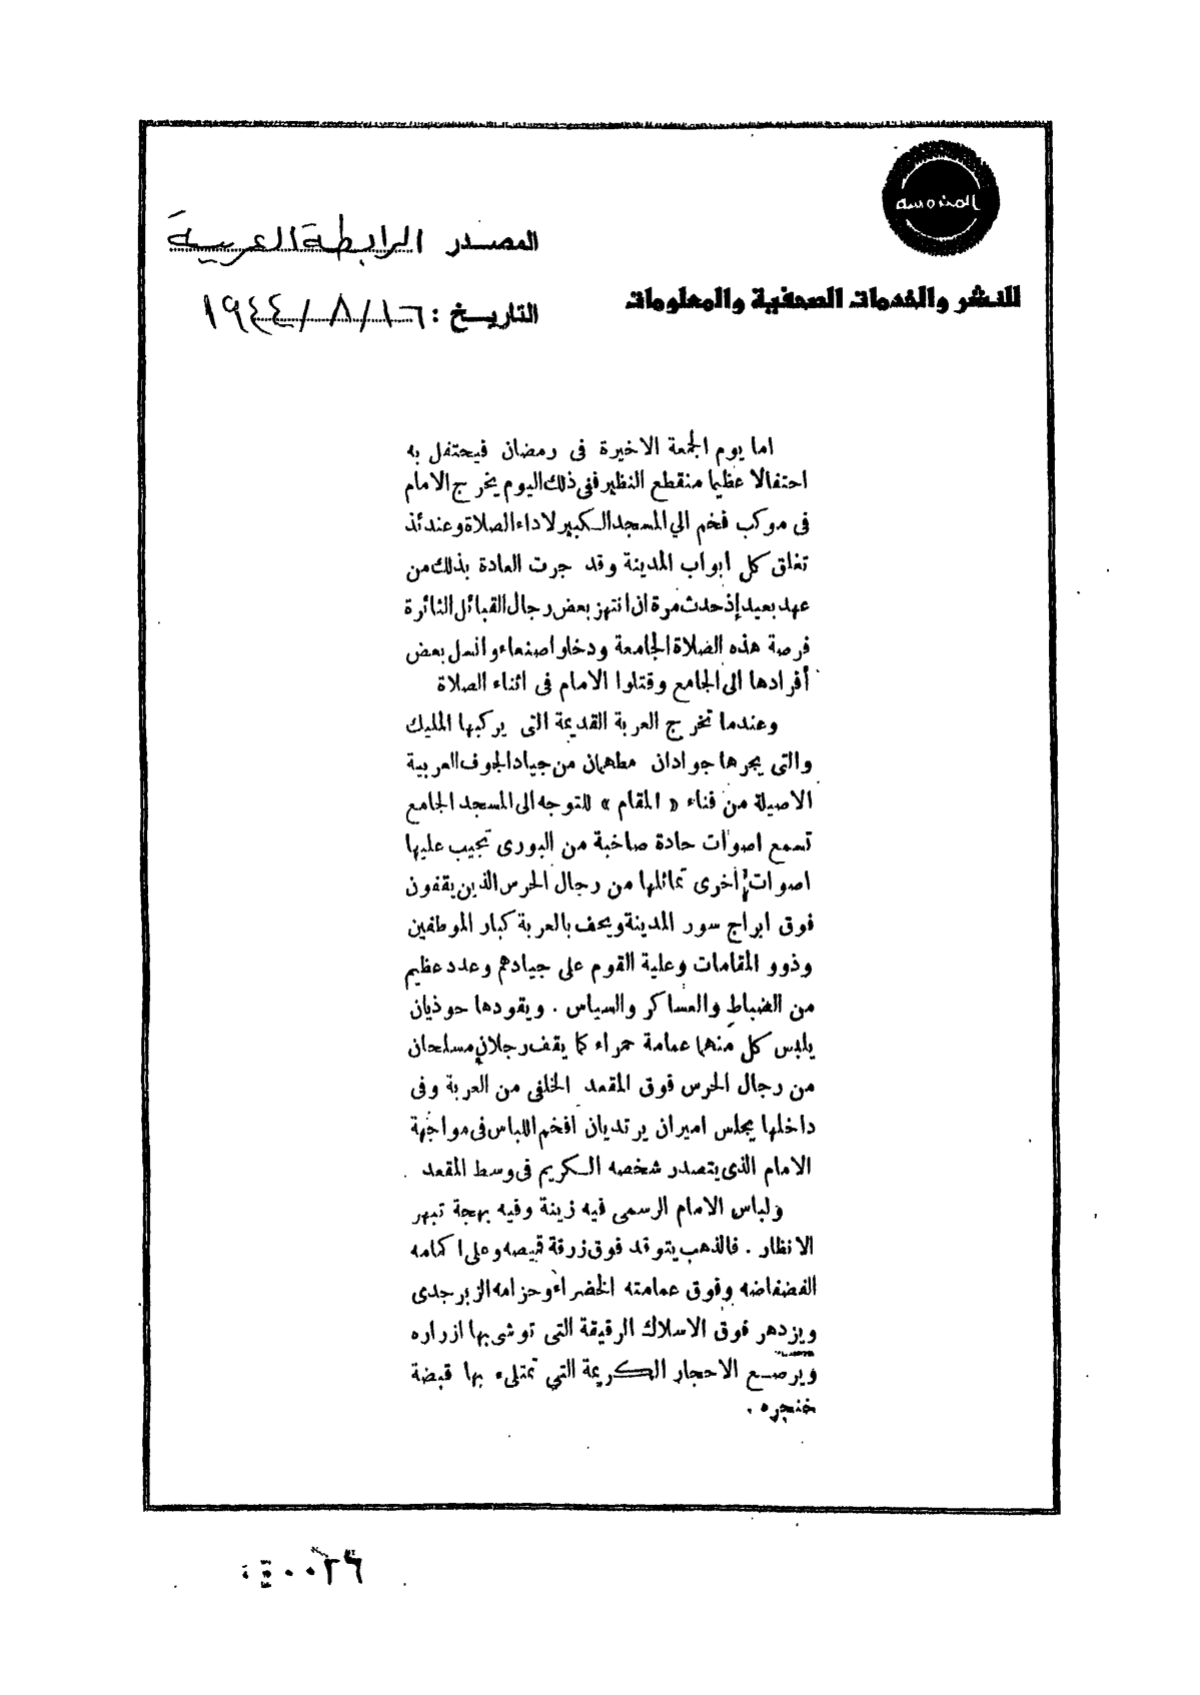 المصدر الرابطة العربية
للنشر والخدمات الصحفية والمعلومات
التاريخ : ١٦/٨/١٩٤٤
اما يوم الجمعة الاخيرة فى رمضان فيحتفل به
احتفالا عظيما منقطع النظير ففى ذلك اليوم يخرج الامام
فى موكب فخم الي المسجد الكبير لاداء الصلاة وعندئذ
تغلق كل ابواب المدينة وقد جرت العادة بذلك من
عهد بعيد إذ حدث مرة ان انتهز بعض رجال القبائل الثائرة
فرصة هذه الصلاة الجامعة ودخلوا صنعاء وانسل بعض
أفرادها الى الجامع وقتلوا الامام فى اثناء الصلاة
وعندما تخرج العربة القديمة التى يركبها المليك
والتى يجرها جوادان مطهمان من جياد الجوف العربية
الاصيلة من فناء « المقام » للتوجه الى المسجد الجامع
تسمع اصوات حادة صاخبة من البورى تجيب عليها
اصوات أخرى تماثلها من رجال الحرس الذين يقفون
فوق ابراج سور المدينة ويحف بالعربة كبار الموظفين
وذوو المقامات وعلية القوم على جيادهم وعدد عظيم
من الضباط والعساكر والسياس . ويقودها حوذيان
يلبس كل منهما عمامة حمراء كما يقف رجلان مسلحان
من رجال الحرس فوق المقعد الخلفى من العربة وفى
داخلها يجلس اميران يرتديان افخم اللباس فى مواجهة
الامام الذى يتصدر شخصه الكريم فى وسط المقعد .
ولباس الامام الرسمى فيه زينة وفيه بهجة تبهر
الانظار . فالذهب يتوقد فوق زرقة قميصه وعلى اكمامه
الفضفاضه وفوق عمامته الخضراء وحزامه الزبرجدى
ويزدهر فوق الاسلاك الرقيقة التى توشى بها ازراره
ويرصع الاحجار الكريمة التي تمتلىء بها قبضة
خنجره .